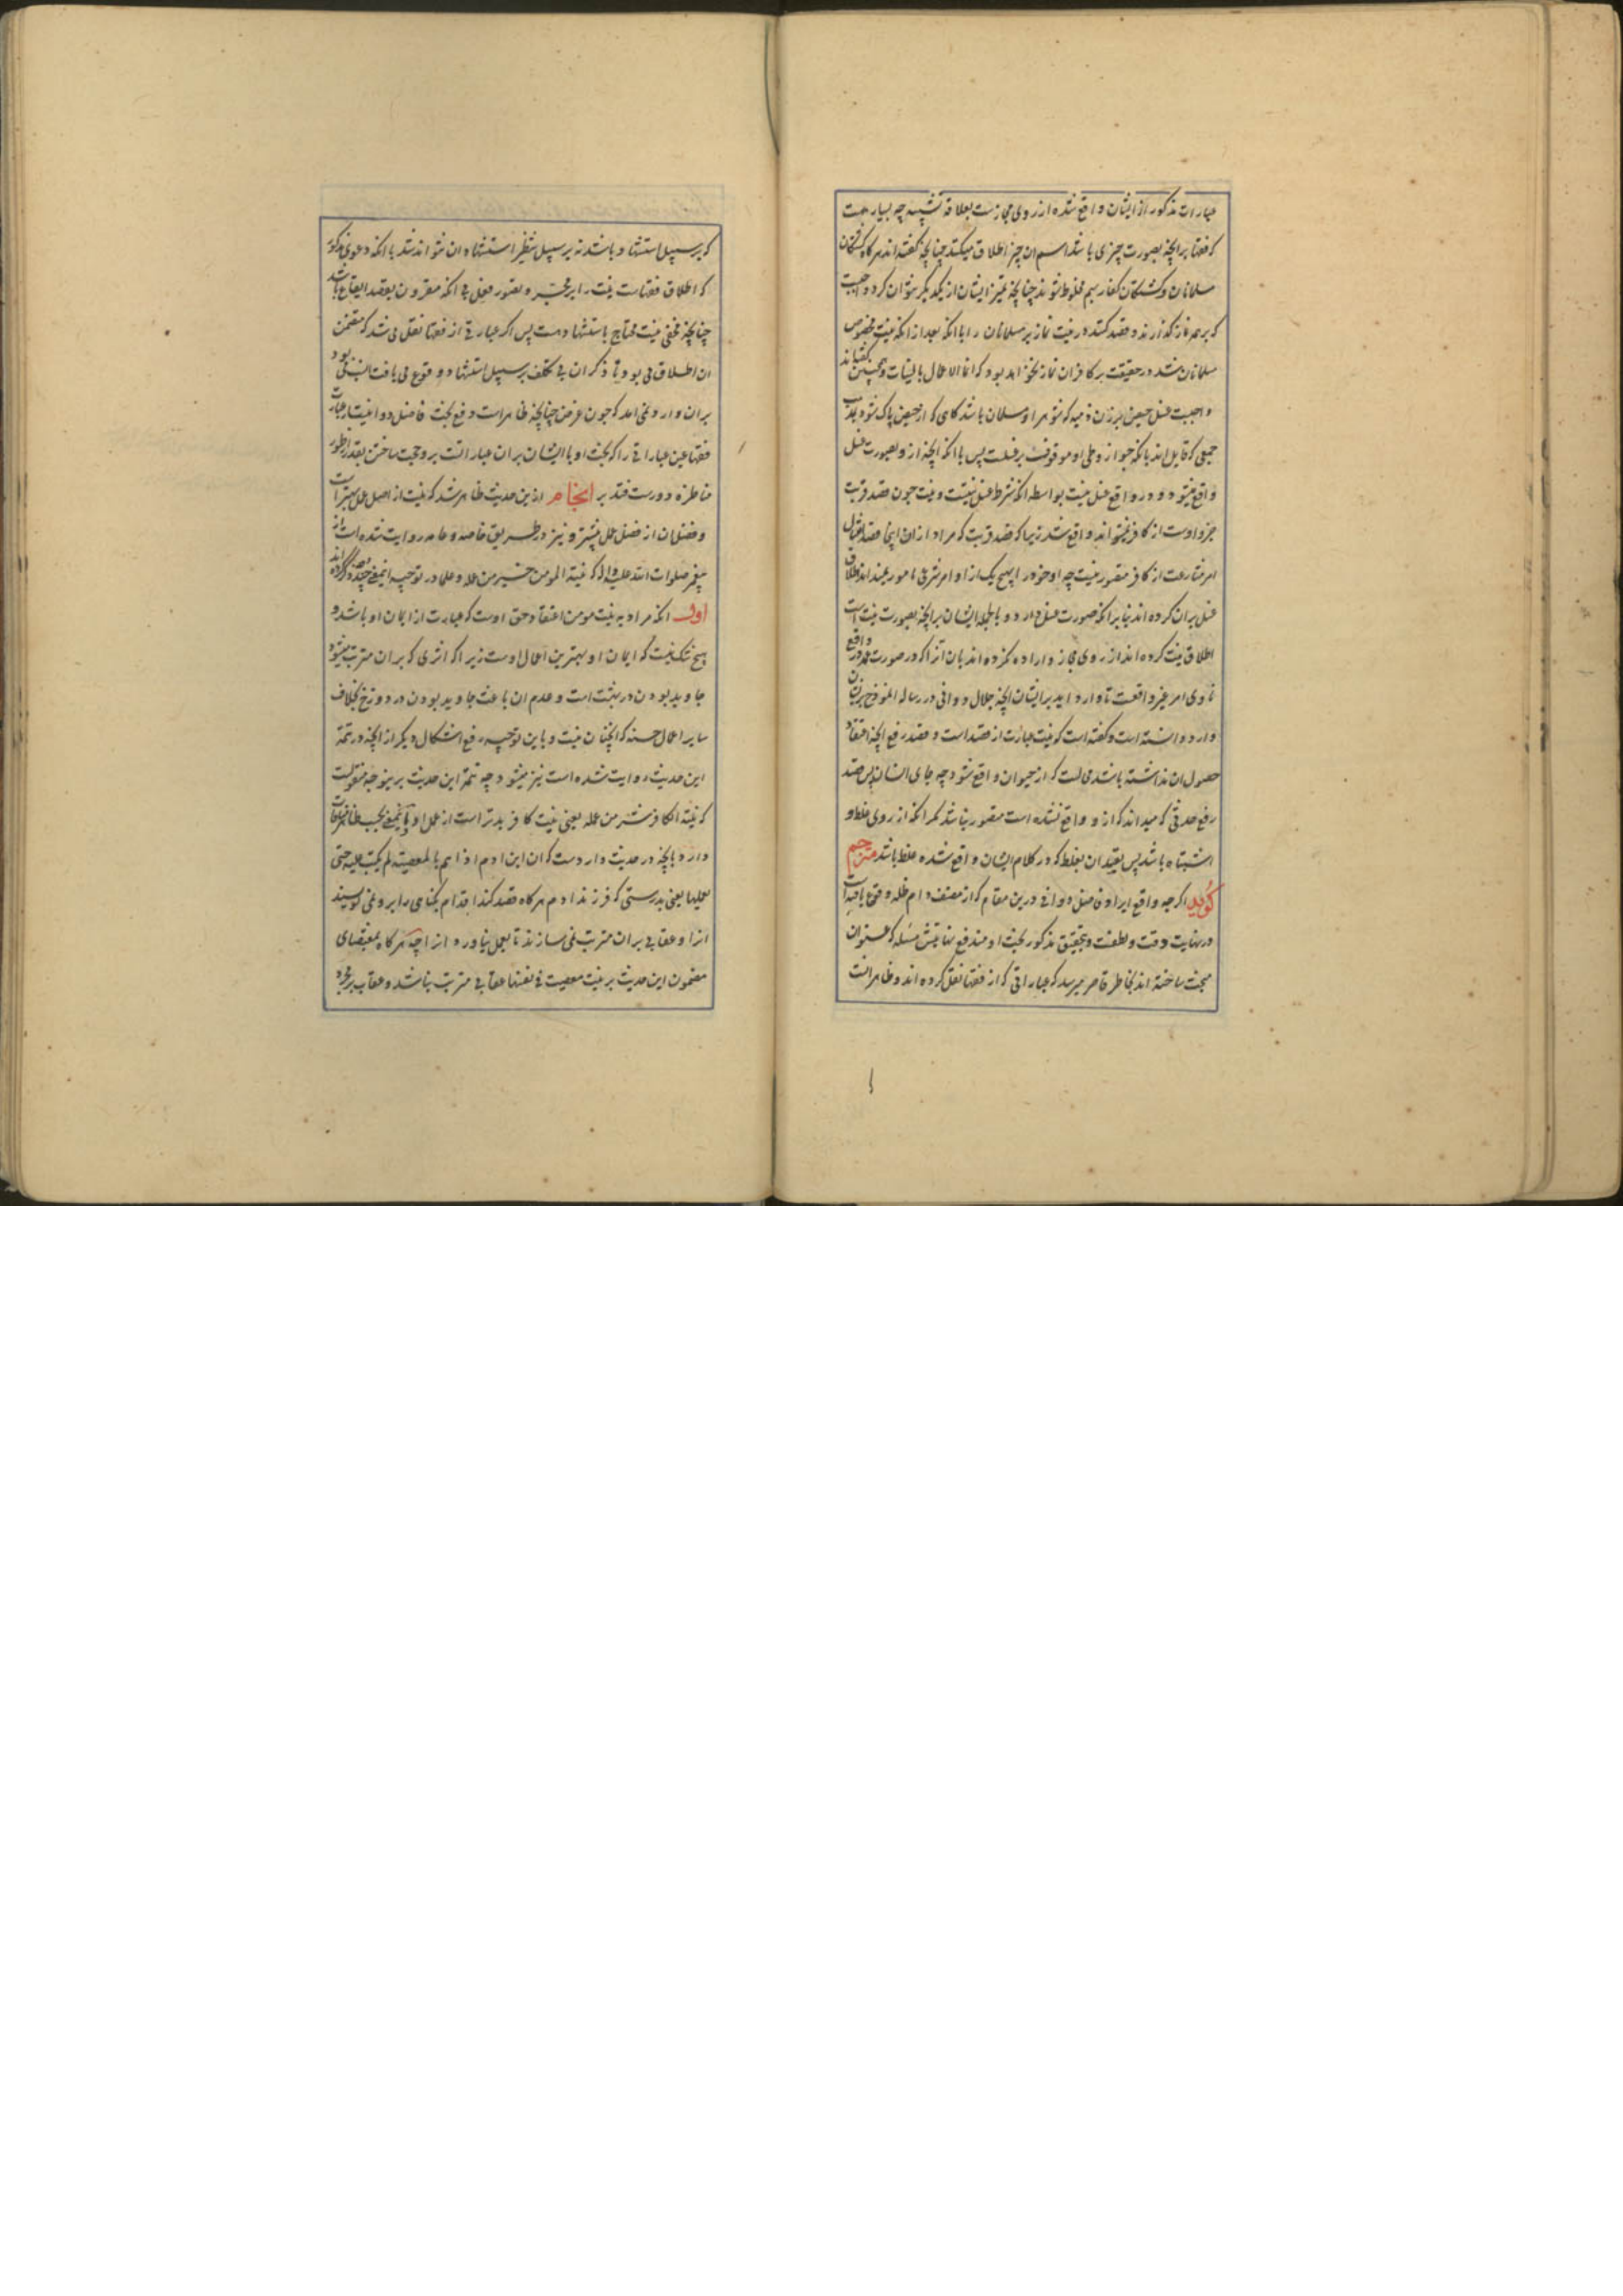 عبارات مذکور از ایشان واقع شده از روی مجازست بعلاقه تشبیه چه بسیارهست
که فقها بر انچه بصورت چیزی باشد اسم ان چیز اطلاق میکنند چنانچه گفته اند هرگاه کشتگان
مسلمانان و کشتگان کفار بهم مخلوط شوند چنانچه تمیز ایشان از یکدیگر نتوان کرد واجبست
که بر همه نماز گذارند و قصد کننده در نیت نماز بر مسلمانان را با انکه بعد از انکه نیت مخصوص
مسلمانان شد در حقیقت بر کافران نماز نخواهد بود که انما الاعمال بالنیات و همچنین گفته اند
واجبست غسل حیض بر زن ذمیه که شوهر او مسلمان باشد کاهی که از حیض پاک شود بمذهب
جمعی که قایل اند بانکه جواز وطی او موقوفست بر غسلت پس با انکه انچه از و بصورت غسل
واقع میشود و در واقع غسل نیست بواسطه انکه شرط غسل نیتست و نیت چون قصد قربت
جزو اوست از کافر نمیتواند واقع شد زیرا که قصد قربت که مراد از ان اینجا قصد امتثال
امر شارعست از کافر متصور نیست چه او خود را بهیچ یک از اوامر شرعی مامور نمیداند اطلاق
غسل بران کرده اند بنا بر انکه صورت غسل دارد و بالجمله ایشان بر انچه بصورت نیت است
اطلاق نیت کرده اند از روی مجاز و اراده نکرده اند بان انرا که در صورت مذکور در واقع
ناوی امر غیر واقعست تا وارد اید بر ایشان انچه جلال دوانی در رساله انموذج بر ایشان
وارد دانسته است و گفته است که نیت عبارت از قصد است و قصد رفع انچه اعتقاد
حصول ان نداشته باشد محالست که از حیوان واقع شود چه جای انسان پس قصد
رفع حدثی که میداند که از و واقع نشده است متصور نباشد مگر انکه از روی غلط و
اشتباه باشد پس تقیید ان بغلط که در کلام ایشان واقع شده غلط باشد مترجم
گوید اگرچه واقع ایراد فاضل دوانی درین مقام که از مصنف دام ظله وقوع یافته است
در نهایت دقت و لطفست و بتحقیق مذکور بحث او مندفع نهایتش مسئله که عنوان
مبحث ساخته اند بخاطر قاصر میرسد که عباراتی که از فقها نقل کرده اند و ظاهر انست
که بر سبیل استشهاد باشد نه بر سبیل تنظیر استشهاد ان نتواند شد با انکه دعوی مذکور
که اطلاق فقهاست نیت را بر مجرد تصور فعل بی انکه مقرون بقصد ایقاع باشد
چنانچه مخفی نیست محتاج باستشهادست پس اگر عبارتی از فقها نقل می شد که متضمن
ان اطلاق می بود تا ذکر ان بی تکلف بر سبیل استشهاد وقوع می یافت انسب می بود
بران وارد نمی امد که چون غرض چنانچه ظاهر است دفع بحث فاضل دوانیست از عبارات
فقها عین عباراتی را که بحث او با ایشان بران عباراتست بر و حجت ساختن بقدر از طور
مناظره دورست فتدبر انجام ازین حدیث ظاهر شد که نیت از اصل عمل بهتر است
و فضل ان از فضل عمل بیشتر و نیز در طریق خاصه و عامه روایت شده است از
پیغمبر صلوات الله علیه و اله که نیة المومن خیر من عمله و علما در توجیه اینمعنی چند وجه ذکر کرده اند
اول انکه مراد به نیت مومن اعتقاد حق اوست که عبارت از ایمان او باشد و
هیچ شک نیست که ایمان او بهترین اعمال اوست زیرا که اثری که بران مترتب میشود
جاوید بودن در بهشت است و عدم ان باعث جاوید بودن در دوزخ بخلاف
سایر اعمال حسنه که انچنان نیست و باین توجیه رفع اشکال دیگر از انچه در تتمه
این حدیث روایت شده است نیز میشود چه تتمه این حدیث برینوجه منقولست
که نیة الکافر شر من عمله یعنی نیت کافر بدتر است از عمل او و اینمعنی بحسب ظاهر منافات
دارد بانچه در حدیث واردست که ان ابن ادم اذا هم بالمعصیة لم یکتب علیه حتی
یعملها یعنی بدرستی که فرزند ادم هرگاه قصد کند اقدام بگناهی را بر و نمی نویسند
انرا و عقابی بران مترتب نمی سازند تا بعمل نیاورد انرا چه هرگاه بمقتضای
مضمون این حدیث بر نیت معصیت فی نفسها عقابی مترتب نباشد و عقاب بر مجرد